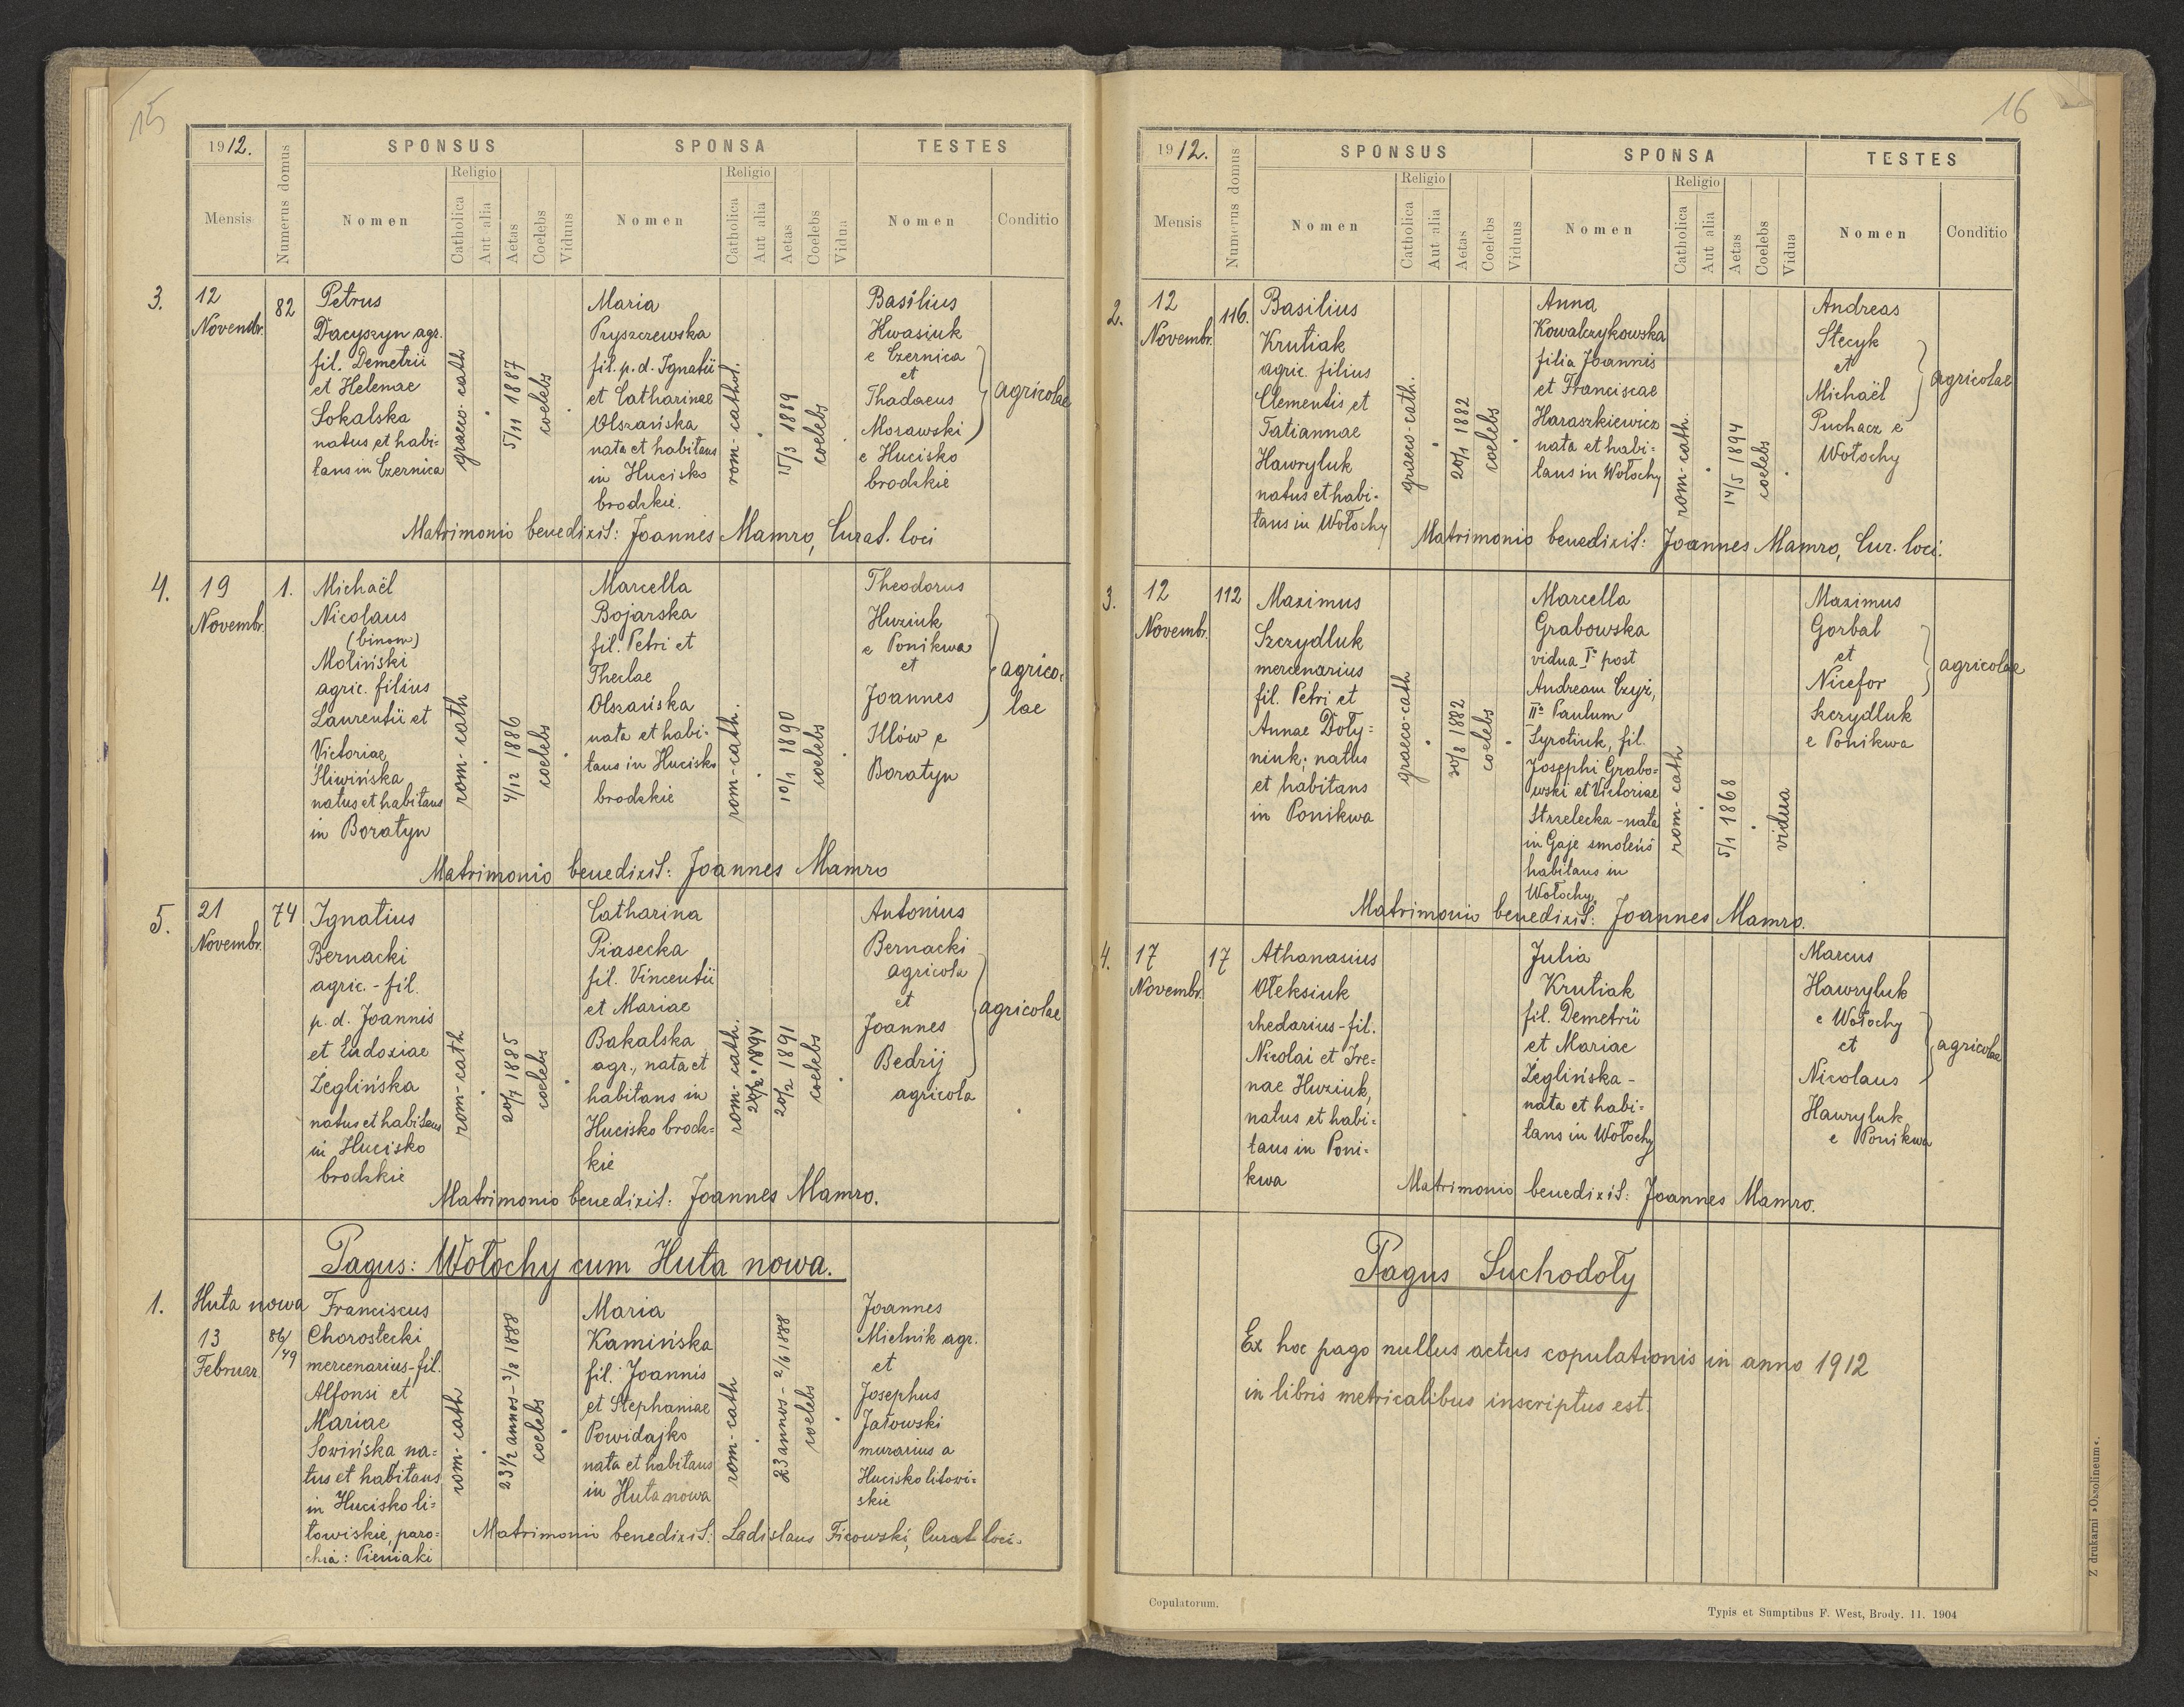 15
1912.
Numerus domus
SPONSUS
SPONSA
TESTES
Mensis
Nomen
Religio
Catholica
Aut alia
Aetas
Coelebs
Viduus
Nomen
Religio
Catholica
Aut alia
Aetas
Coelebs
Vidua
Nomen
Conditio
3.
12
Novembr.
82
Petrus
Dacyszyn agr.
fil. Demetrii
et Helenae
Sokalska
natus et habi-
tans in Czernica
graeco-cath
5/11 1887
coelebs
Maria
Pryszczewska
fil. p. d. Ignatii
et Catharinae
Olszańska
nata et habitans
in Hucisko
brodzkie.
rom-cathol.
15/3 1889
coelebs
Basilius
Kwasiuk
e Czernica
et
Thadaeus
Morawski
e Hucisko
brodzkie
agricolae
Matrimonio benedixit: Joannes Mamro, Curat. loci
4.
19
Novembr.
1.
Michaël
Nicolaus
(binom)
Moliński
agric. filius
Laurentii et
Victoriae
Śliwińska
natus et habitans
in Boratyn
rom-cath
4/12 1886
coelebs
Marcella
Bojarska
fil. Petri et
Theclae
Olszańska
nata et habi-
tans in Hucisko
brodzkie
rom-cath.
10/1 1890
coelebs
Theodorus
Huziuk
e Ponikwa
et
Joannes
Illów e
Boratyn
agrico-
lae
Matrimonio benedixit: Joannes Mamro
5.
21
Novembr.
74
Ignatius
Bernacki
agric.-fil.
p. d. Joannis
et Eudoxiae
Żeglińska
natus et habitans
in Hucisko
brodzkie
rom-cath
20/7 1885
coelebs
Catharina
Piasecka
fil. Vincentii
et Mariae
Bakalska
agr., nata et
habitans in
Hucisko brodz-
kie
rom-cath.
20/2 1894
20/2 1891
coelebs
Antonius
Bernacki
agricola
et
Joannes
Bedrij
agricola
agricolae
Matrimonio benedixit: Joannes Mamro.
Pagus: Wołochy cum Huta nowa.
1.
Huta nowa
13
Februar.
86/49
Franciscus
Chorostecki
mercenarius-fil.
Alfonsi et
Mariae
Sowińska na-
tus et habitans
in Hucisko li-
towiskie, paro-
chia: Pieniaki
rom-cath
23 1/2 annos - 3/8 1888
coelebs
Maria
Kamińska
fil. Joannis
et Stephaniae
Powidajko
nata et habitans
in Huta nowa
rom-cath
23 annos - 2/6 1888
coelebs
Joannes
Mielnik agr.
et
Josephus
Jatowski
murarius a
Hucisko litowi-
skie
Matrimonio benedixit: Ladislaus Ficowski, Curat loci.
16
1912.
Numerus domus
SPONSUS
SPONSA
TESTES
Mensis
Nomen
Religio
Catholica
Aut alia
Aetas
Coelebs
Viduus
Nomen
Religio
Catholica
Aut alia
Aetas
Coelebs
Vidua
Nomen
Conditio
2.
12
Novembr.
116.
Basilius
Krutiak
agric. filius
Clementis et
Tatiannae
Hawryluk
natus et habi-
tans in Wołochy
graeco-cath.
20/1 1882
coelebs
Anna
Kowalczykowska
filia Joannis
et Franciscae
Haraszkiewicz
nata et habi-
tans in Wołochy
rom-cath.
14/5 1894
coelebs
Andreas
Stecyk
et
Michaël
Puchacz e
Wołochy
agricolae
Matrimonio benedixit: Joannes Mamro, Cur. loci.
3.
12
Novembr.
112
Maximus
Szczydluk
mercenarius
fil. Petri et
Annae Doły-
niuk; natus
et habitans
in Ponikwa
graeco-cath
30/8 1882
coelebs
Marcella
Grabowska
vidua I° post
Andream Czyż,
II° Paulum
Syrotiuk, fil.
Josephi Grabo-
wski et Victoriae
Strzelecka-nata
in Gaje smoleńs
habitans in
Wołochy.
rom-cath
5/1 1868
vidua
Maximus
Gorbal
et
Nicefor
Szczydluk
e Ponikwa
agricolae
Matrimonio benedixit: Joannes Mamro.
4.
17
Novembr.
17
Athanasius
Ołeksiuk
rhedarius-fil.
Nicolai et Ire-
nae Huziuk,
natus et habi-
tans in Poni-
kwa
Julia
Krutiak
fil. Demetrii
et Mariae
Żeglińska -
nata et habi-
tans in Wołochy
Marcus
Hawryluk
e Wołochy
et
Nicolaus
Hawryluk
e Ponikwa
agricolae
Matrimonio benedixit: Joannes Mamro.
Pagus Suchodoły
Ex hoc pago nullus actus copulationis in anno 1912
in libris metricalibus inscriptus est.
Copulatorum.
Typis et Sumptibus F. West, Brody. 11. 1904
Z drukarni »Ossolineum«.